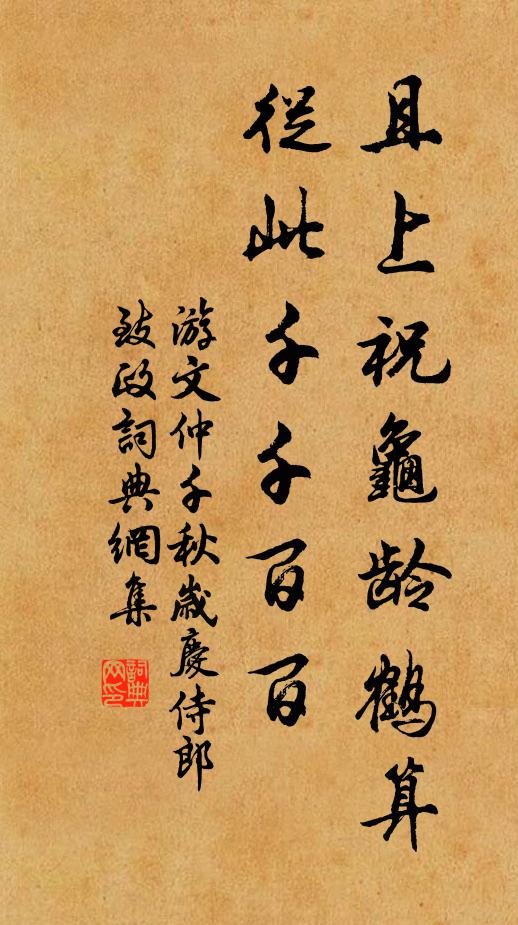 且上祝龜齡鶴算
從此千千百百
游文仲千秋歲慶侍郎
致政詞典網集
詞典網印